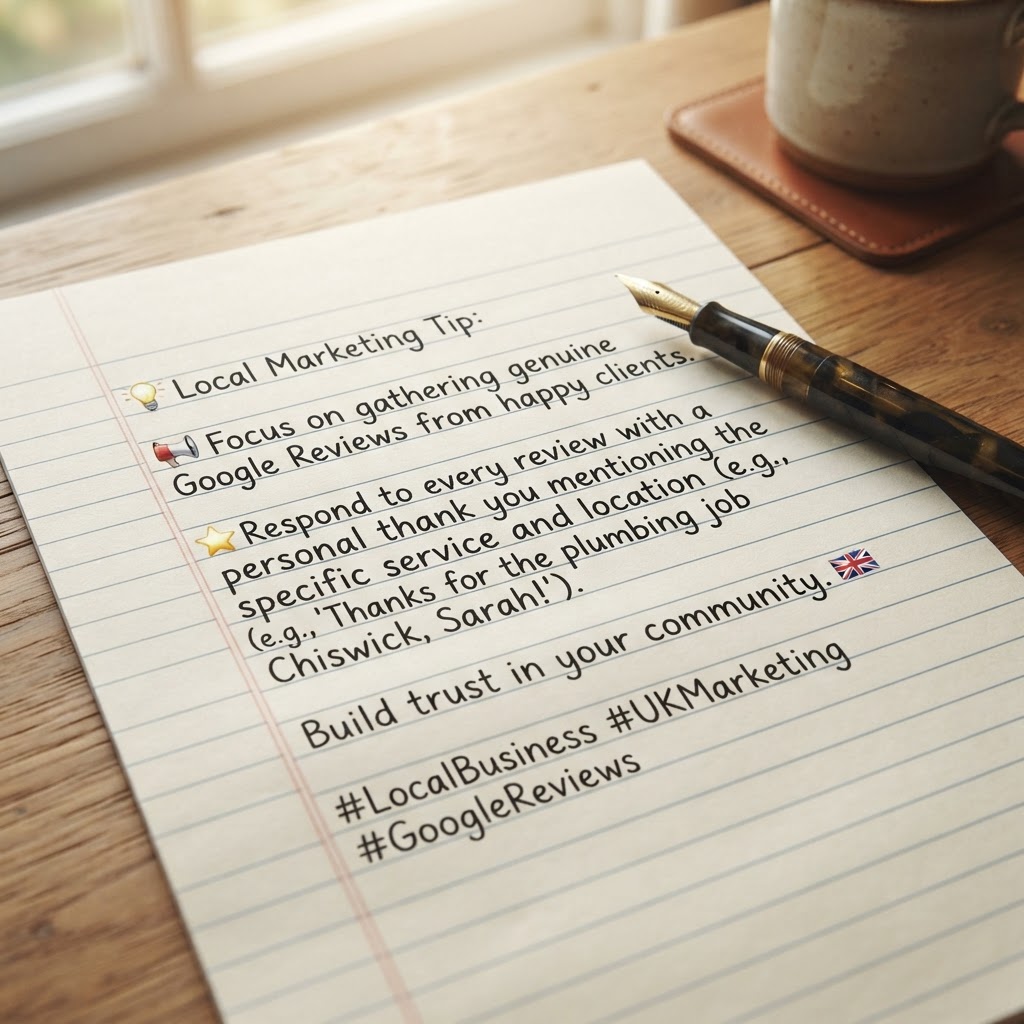 💡 Local Marketing Tip:
📢 Focus on gathering genuine
Google Reviews from happy clients.
⭐ Respond to every review with a
personal thank you mentioning the
specific service and location (e.g.,
(e.g., 'Thanks for the plumbing job
Chiswick, Sarah!').
Build trust in your community. 🇬🇧
#LocalBusiness #UKMarketing
#GoogleReviews